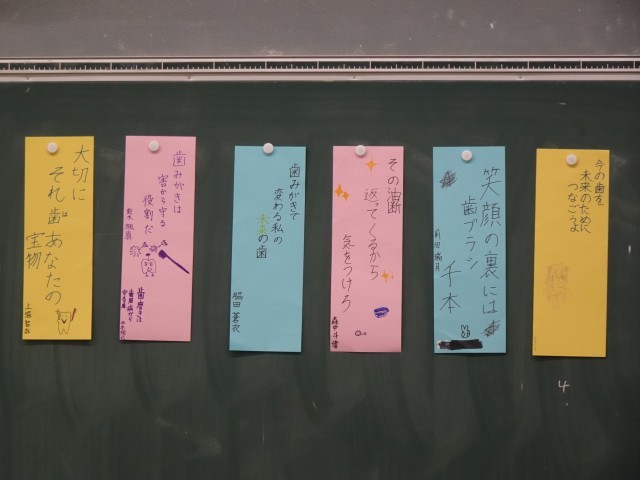 大切に
それ歯あなたの
宝物
歯みがきは
害から守る
役割だ
歯みがきで
変わる私の
未来の歯
脇田
その油断
返ってくるから
気をつけろ
笑顔の裏には
歯ブラシ
千本
前田
今の歯を
未来のために
つなごうよ
4